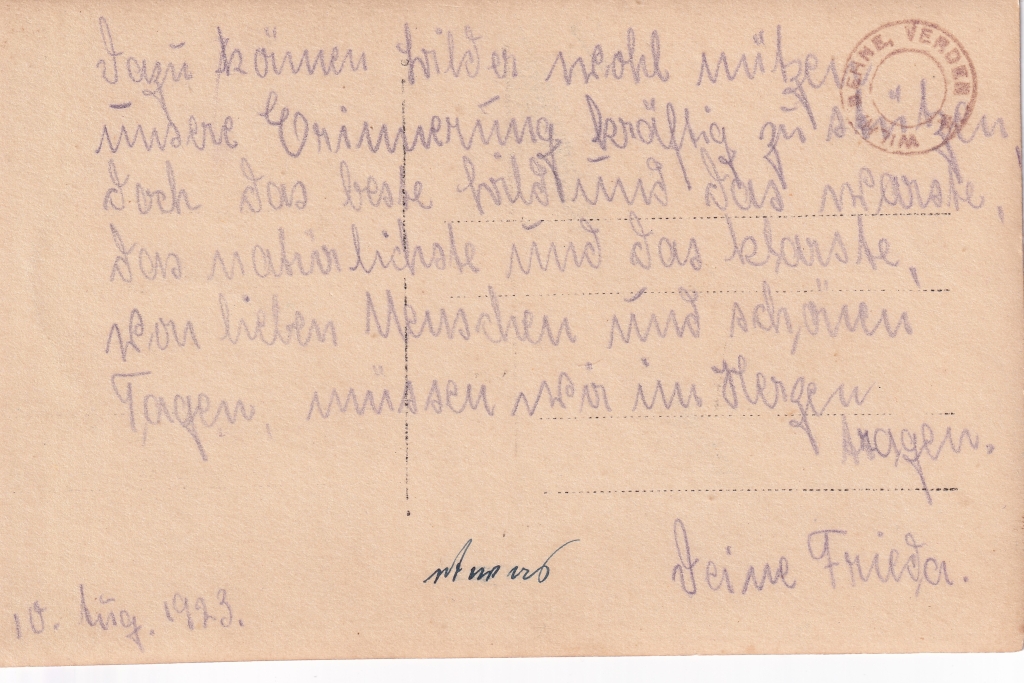 Dazu können Bilder wohl nützen
unsere Erinnerung kräftig zu stützen
doch das beste Bild und das warste,
das natürlichste und das klarste,
von lieben Menschen und schönen
Tagen, müssen wir im Herzen
tragen.
Deine Frieda.
10. Aug. 1923.
VERDEN